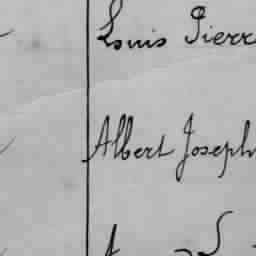 Louis Pierr
Albert Joseph